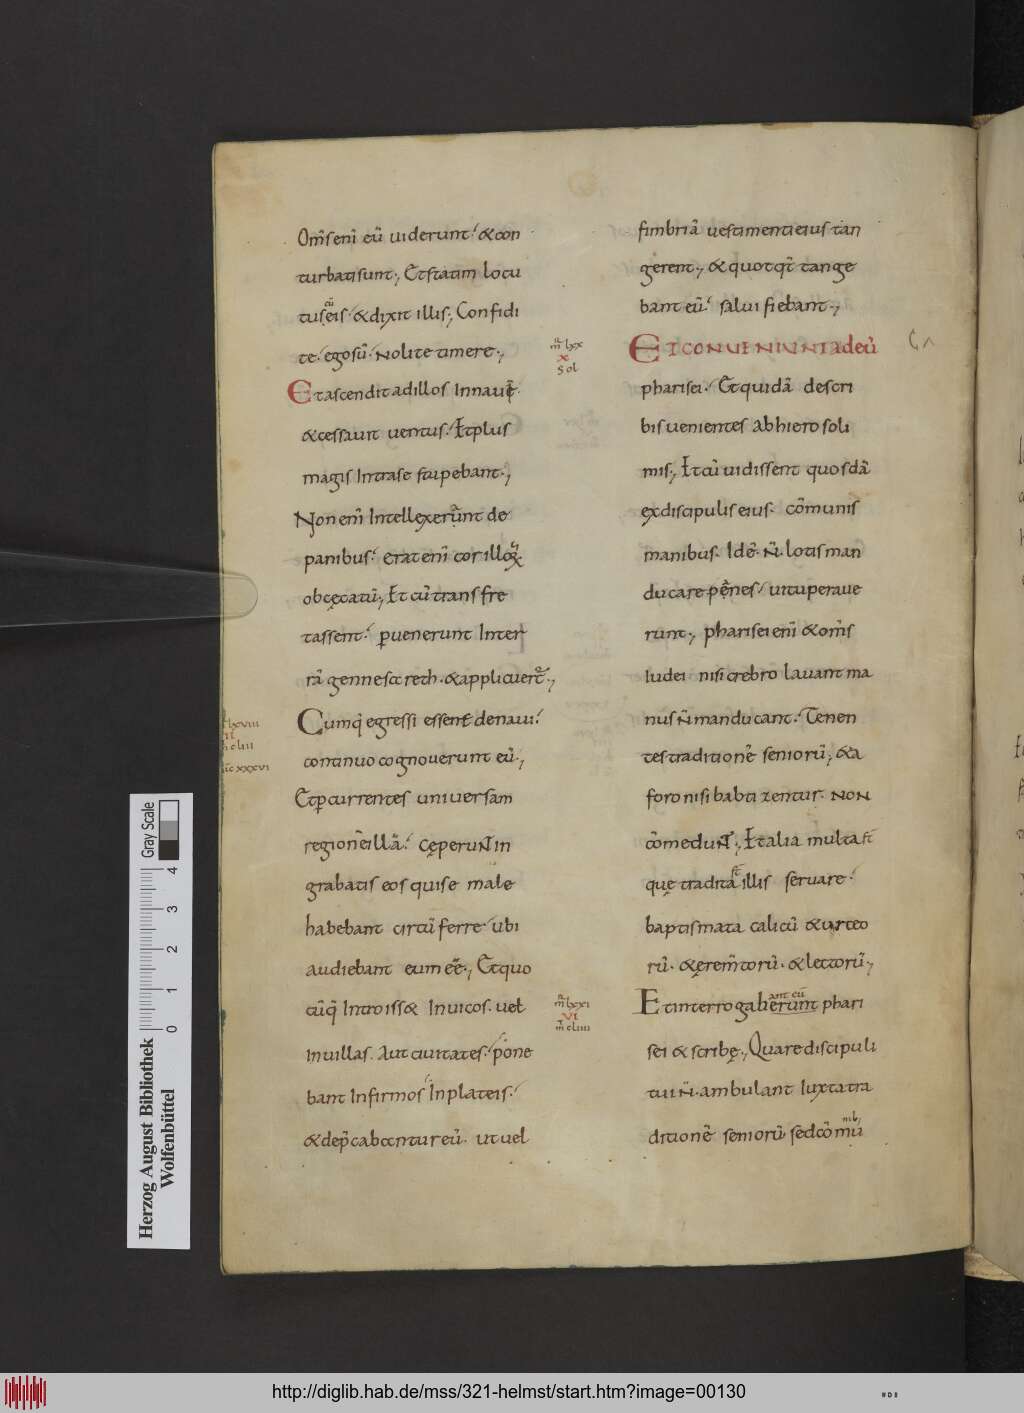 Om̅s eni̅ eu̅ uiderunt & con
turbati sunt; Et statim locu
tus cu̅ eis & dixit illis; Confidi
te. ego su̅ Nolite timere;
Et ascendit ad illos In naue̅
& cessauit uentus. Et plus
magis Intra se stupebant;
Non eni̅ Intellexerunt de
panibus. erat eni̅ cor illoꝝ
obcęcatu̅; Et cu̅ transfre
tassent. ꝑuenerunt Inter
ra̅ gennesareth. & applicuert̅;
Cumq̅ egressi essent de naui.
continuo cognouerunt eu̅;
Et ꝑcurrentes uniuersam
regione̅ illa̅. cęperuNT in
grabatis eos qui se male
habebant circu̅ferre ubi
audiebant eum ee̅; Et quo
cu̅q̅ Introiss& In uicos. uel
In uillas. Aut ciuitates. pone
bant Infirmos In plateis.
& dep̅cabantur eu̅. ut uel
lxviii
cliii
xxxvi
fimbria̅ uestimenti eius tan
gerent; & quotqt̅ tange
bant eu̅. salui fiebant;
ET CONUENIUNT ad eu̅
pharisei. Et quida̅ de scri
bis uenientes ab hierosoli
mis; Et cu̅ uidissent quosda̅
ex discipulis eius. co̅munis
manibus. Id e̅. N̅. lotis man
ducare pa̅nes. uituperaue
runt; pharisei eni̅ & om̅s
Iudei nisi crebro lauant ma
nus N̅ manducant. Tenen
tes traditione̅ senioru̅; & a
foro nisi babtizentur. NON
co̅meduNT; Et alia multa st̅
quę tradita st̅ illis seruare.
baptismata calicu̅ & urceo
ru̅. & ęrem̅toru̅. & lectoru̅;
Et interrogabant eu̅ erunt phari
sei & scribę; Quare discipuli
tui N̅. ambulant Iuxta tra
ditione̅ senioru̅ sed co̅mu nib;
m̅ lxx
x
sol
m̅ lxxi
vi
m̅ cliiii
Herzog August Bibliothek
Wolfenbüttel
0 1 2 3 4
Gray Scale
http://diglib.hab.de/mss/321-helmst/start.htm?image=00130